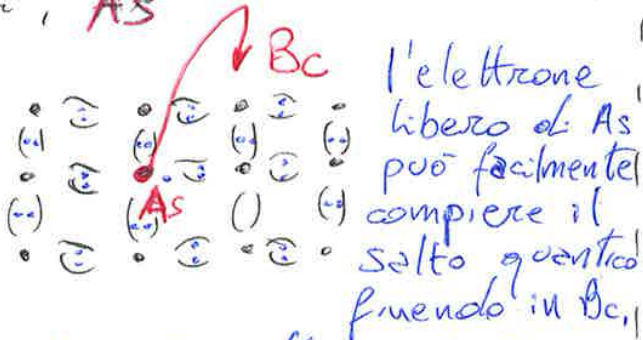 As
Bc
As
l'elettrone
libero di As
può facilmente
compiere il
salto quantico
finendo in Bc,